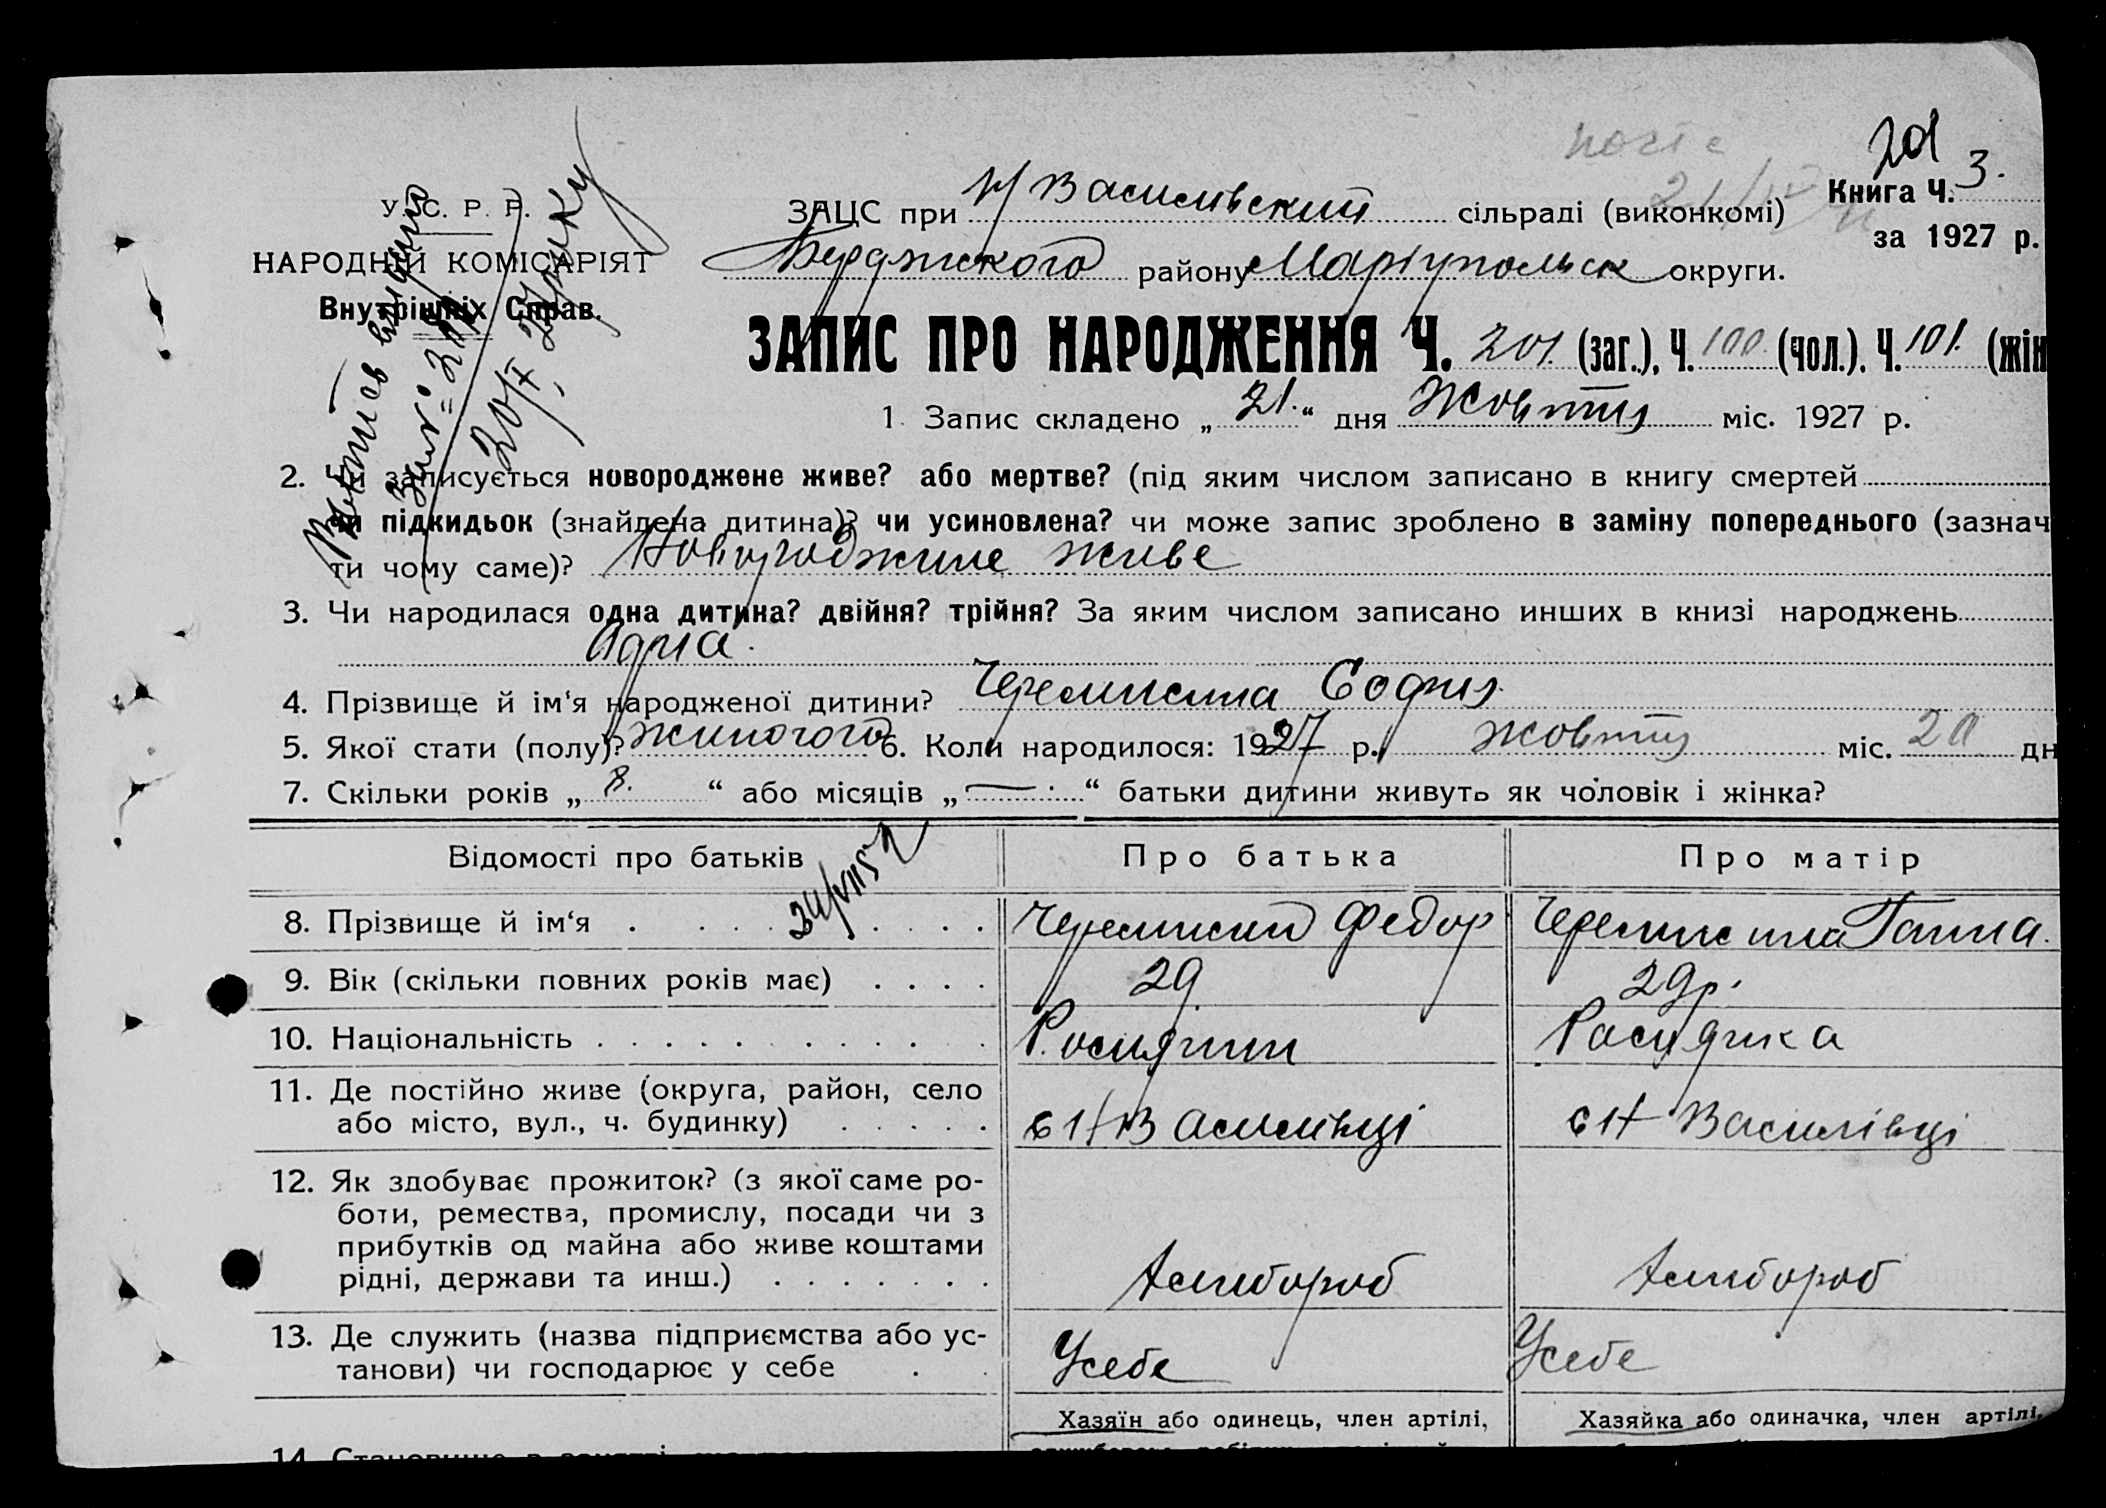 201
Книга Ч. 3.
за 1927 р.
У. С. Р. Р.
НАРОДНІЙ КОМІСАРІЯТ
Внутрішніх Справ.
ЗАЦС при Н Василівский сільраді (виконкомі)
району Маріупольск округи.
ЗАПИС ПРО НАРОДЖЕННЯ Ч. 201. (заг.), Ч. 100 (чол.). Ч. 101. (жін
1. Запис складено „21.“ дня Жовтня міс. 1927 р.
2. Чи записується новороджене живе? або мертве? (під яким числом записано в книгу смертей
чи підкидьок (знайдена дитина)? чи усиновлена? чи може запис зроблено в заміну попереднього (зазнач
ти чому саме)? Новороджене живе
3. Чи народилася одна дитина? двійня? трійня? За яким числом записано инших в книзі народжень
Одна.
4. Прізвище й ім'я народженої дитини? Черемисина Софія.
5. Якої стати (полу)? жиночого 6. Коли народилося: 1927 р. жовтня міс. 20 дн
7. Скільки років „ 8. “ або місяців „ — “ батьки дитини живуть як чоловік і жінка?
Відомості про батьків Про батька Про матір
8. Прізвище й ім'я Черемисин Федор Черемисина Ганна.
9. Вік (скільки повних років має) 29 29 р.
10. Національність Росиянин Росиянка
11. Де постійно живе (округа, район, село
або місто, вул., ч. будинку) с Н Василівці с Н Василівці
12. Як здобуває прожиток? (з якої саме ро-
боти, ремества, промислу, посади чи з
прибутків од майна або живе коштами
рідні, держави та инш.) Хлибороб Хлибороб
13. Де служить (назва підприємства або ус-
танови) чи господарює у себе У себе У себе
Хазяїн або одинець, член артілі, Хазяйка або одиначка, член артілі,